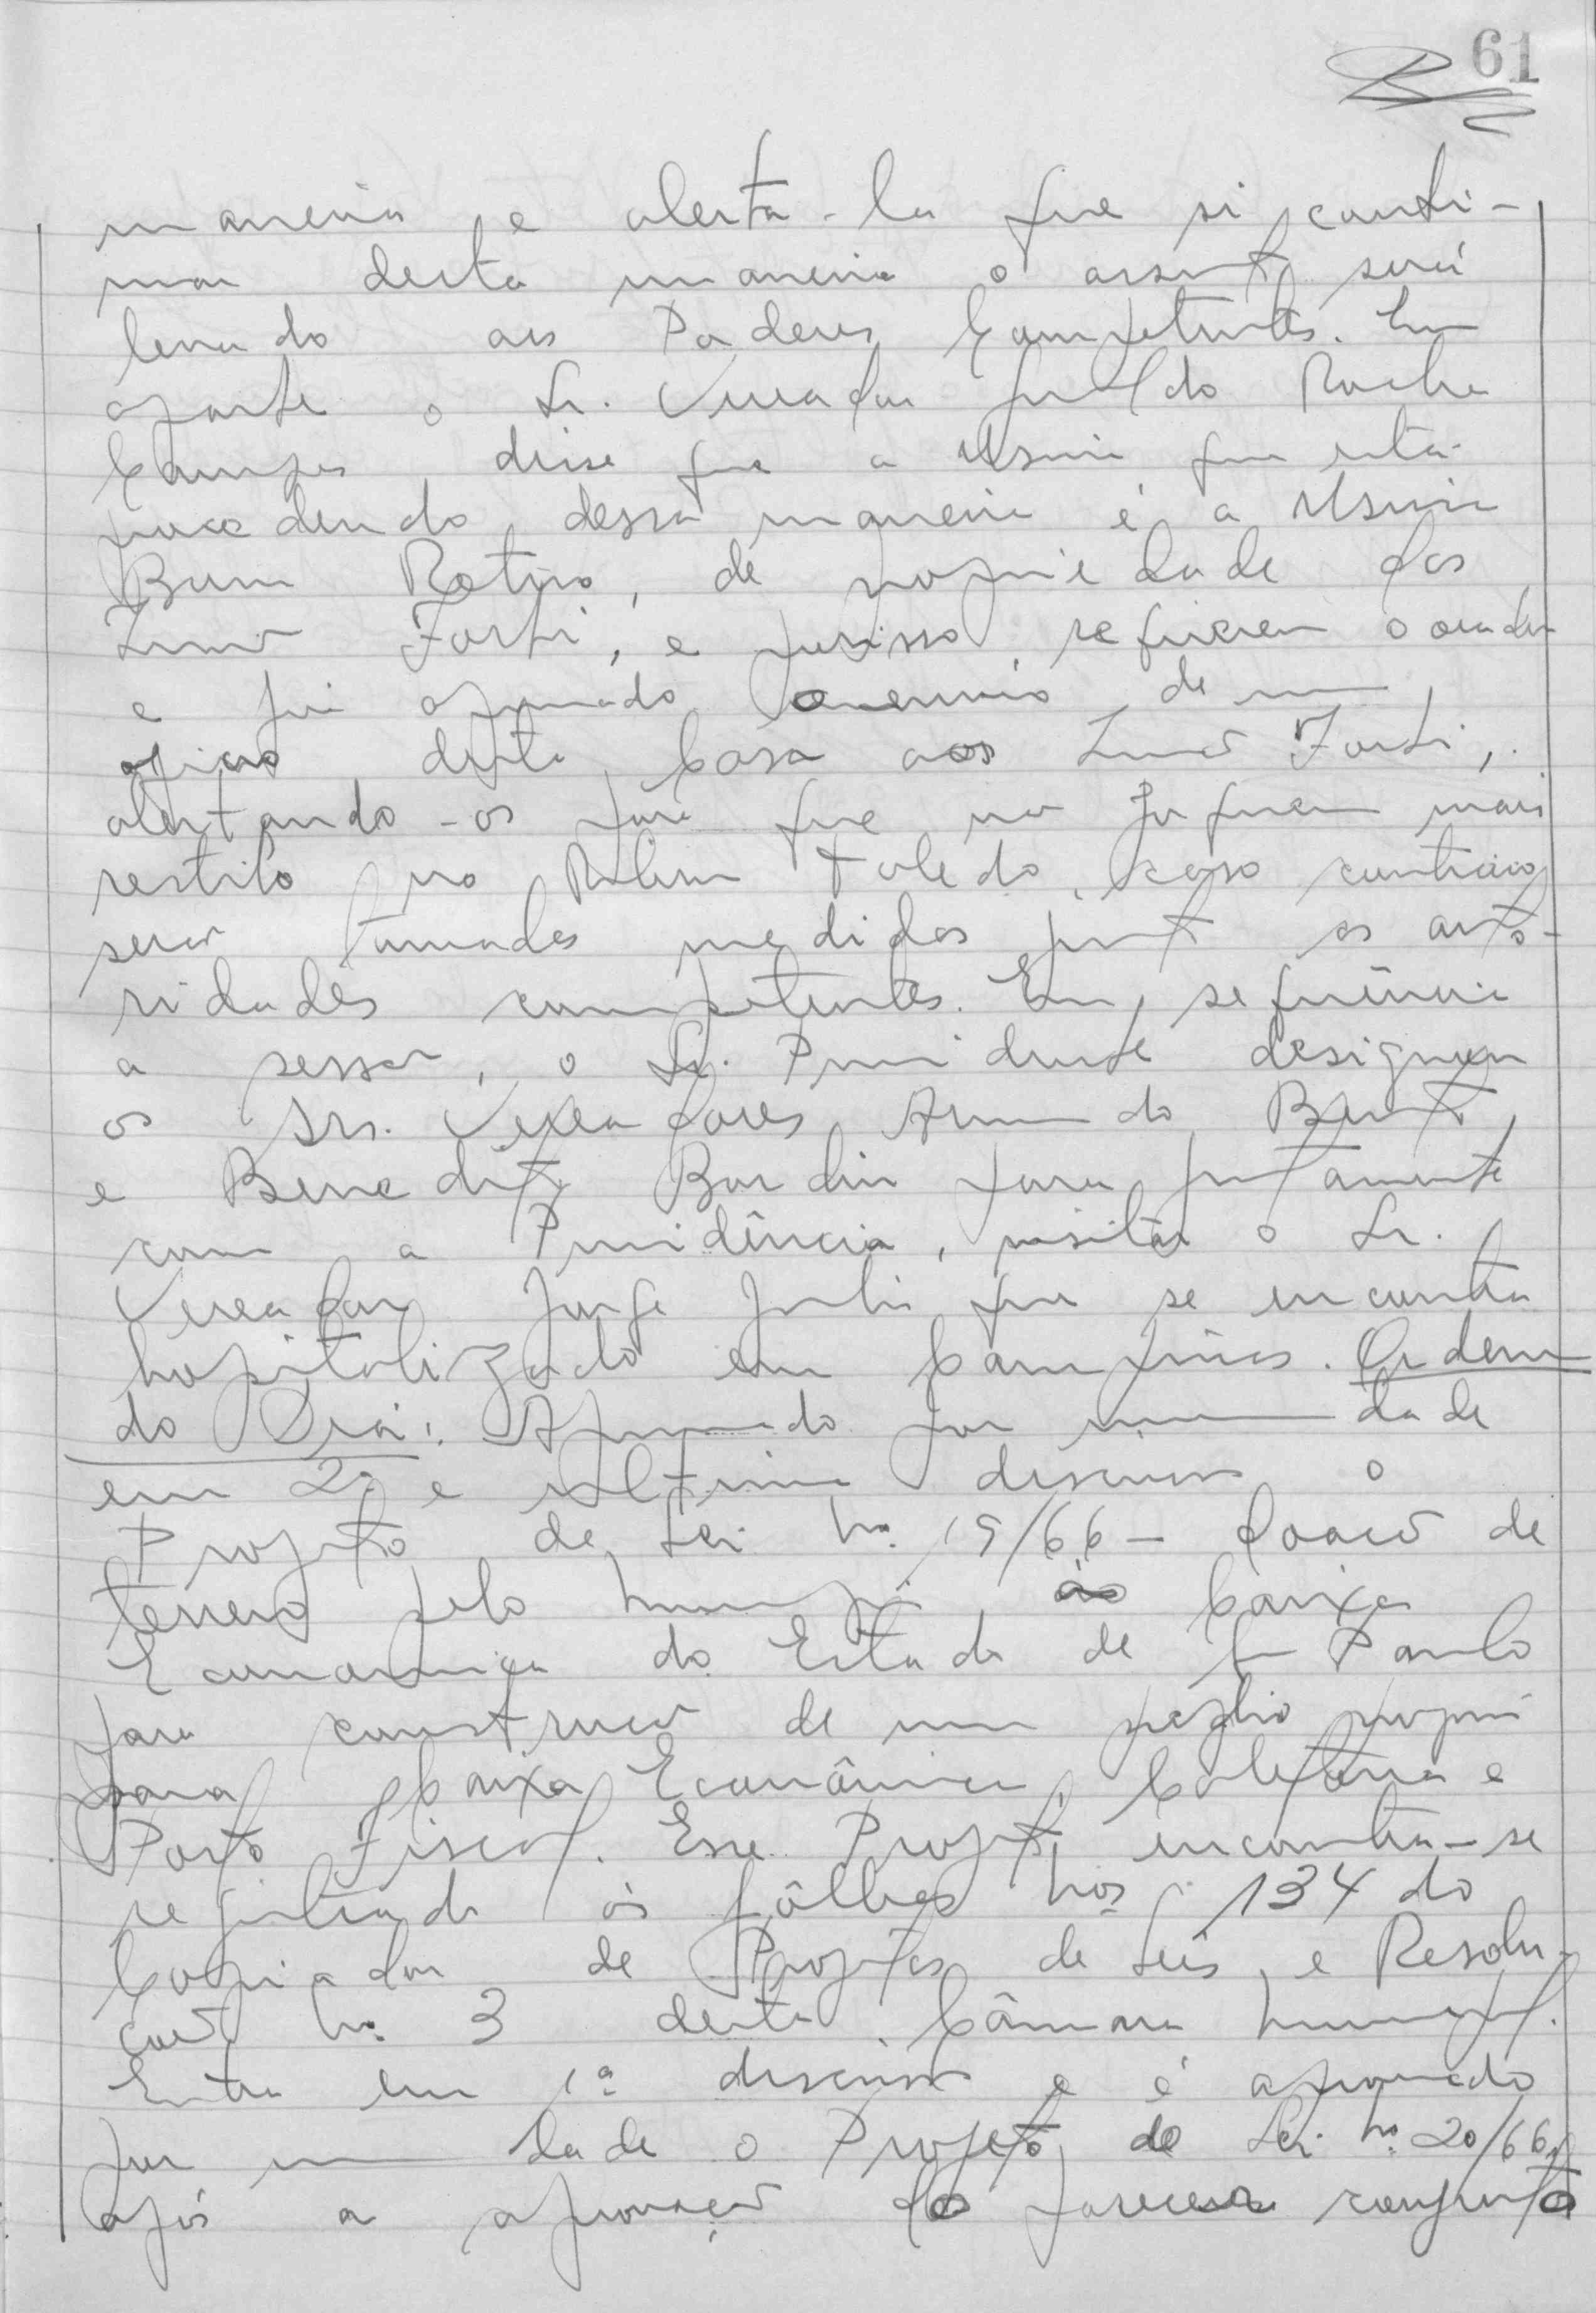 61
maneira e alerta-la que si conti-
nuar desta maneira o assunto será
levado aos Poderes Competentes. Em
aparte o Sr. Vereador Geraldo Rocha
Campos disse que a Usina que esta
procedendo dessa maneira é a Usina
Bom Retiro, de propriedade dos
Irmãos Forti, e por isso, requereu o orador
e foi aprovado o envio de um
oficio desta Casa aos Irmãos Forti,
alertando-os para que não joguem mais
restilo no Ribeirão Toledo, caso contrario
serão tomadas medidas junto as auto-
ridades competentes. Em sequência
a sessão, o Sr. Presidente designou
os Srs. Vereadores Armando Bento
e Benedito Bordin para juntamente
com a Presidência, visitar o Sr.
Vereador Jorge Julio que se encontra
hospitalizado em Campinas. Ordem
do Dia: Aprovado por unanimidade
em 2ª e ultima discussão o
Projeto de Lei nº 19/66 - doacão de
terreno pelo municipio á Caixa
Economica do Estado de São Paulo
para construcão de um predio proprio
para Caixa Econômica, Coletoria e
Posto Fiscal. Esse Projeto encontra-se
registrado ás fôlhas nos 134 do
Copiador de Projetos de Leis e Resolu-
cões nº 3 desta Câmara Municipal.
Entra em 1ª discussão e é aprovado
por unanimidade o Projeto de Lei nº 20/66,
após a aprovação do parecer conjunto